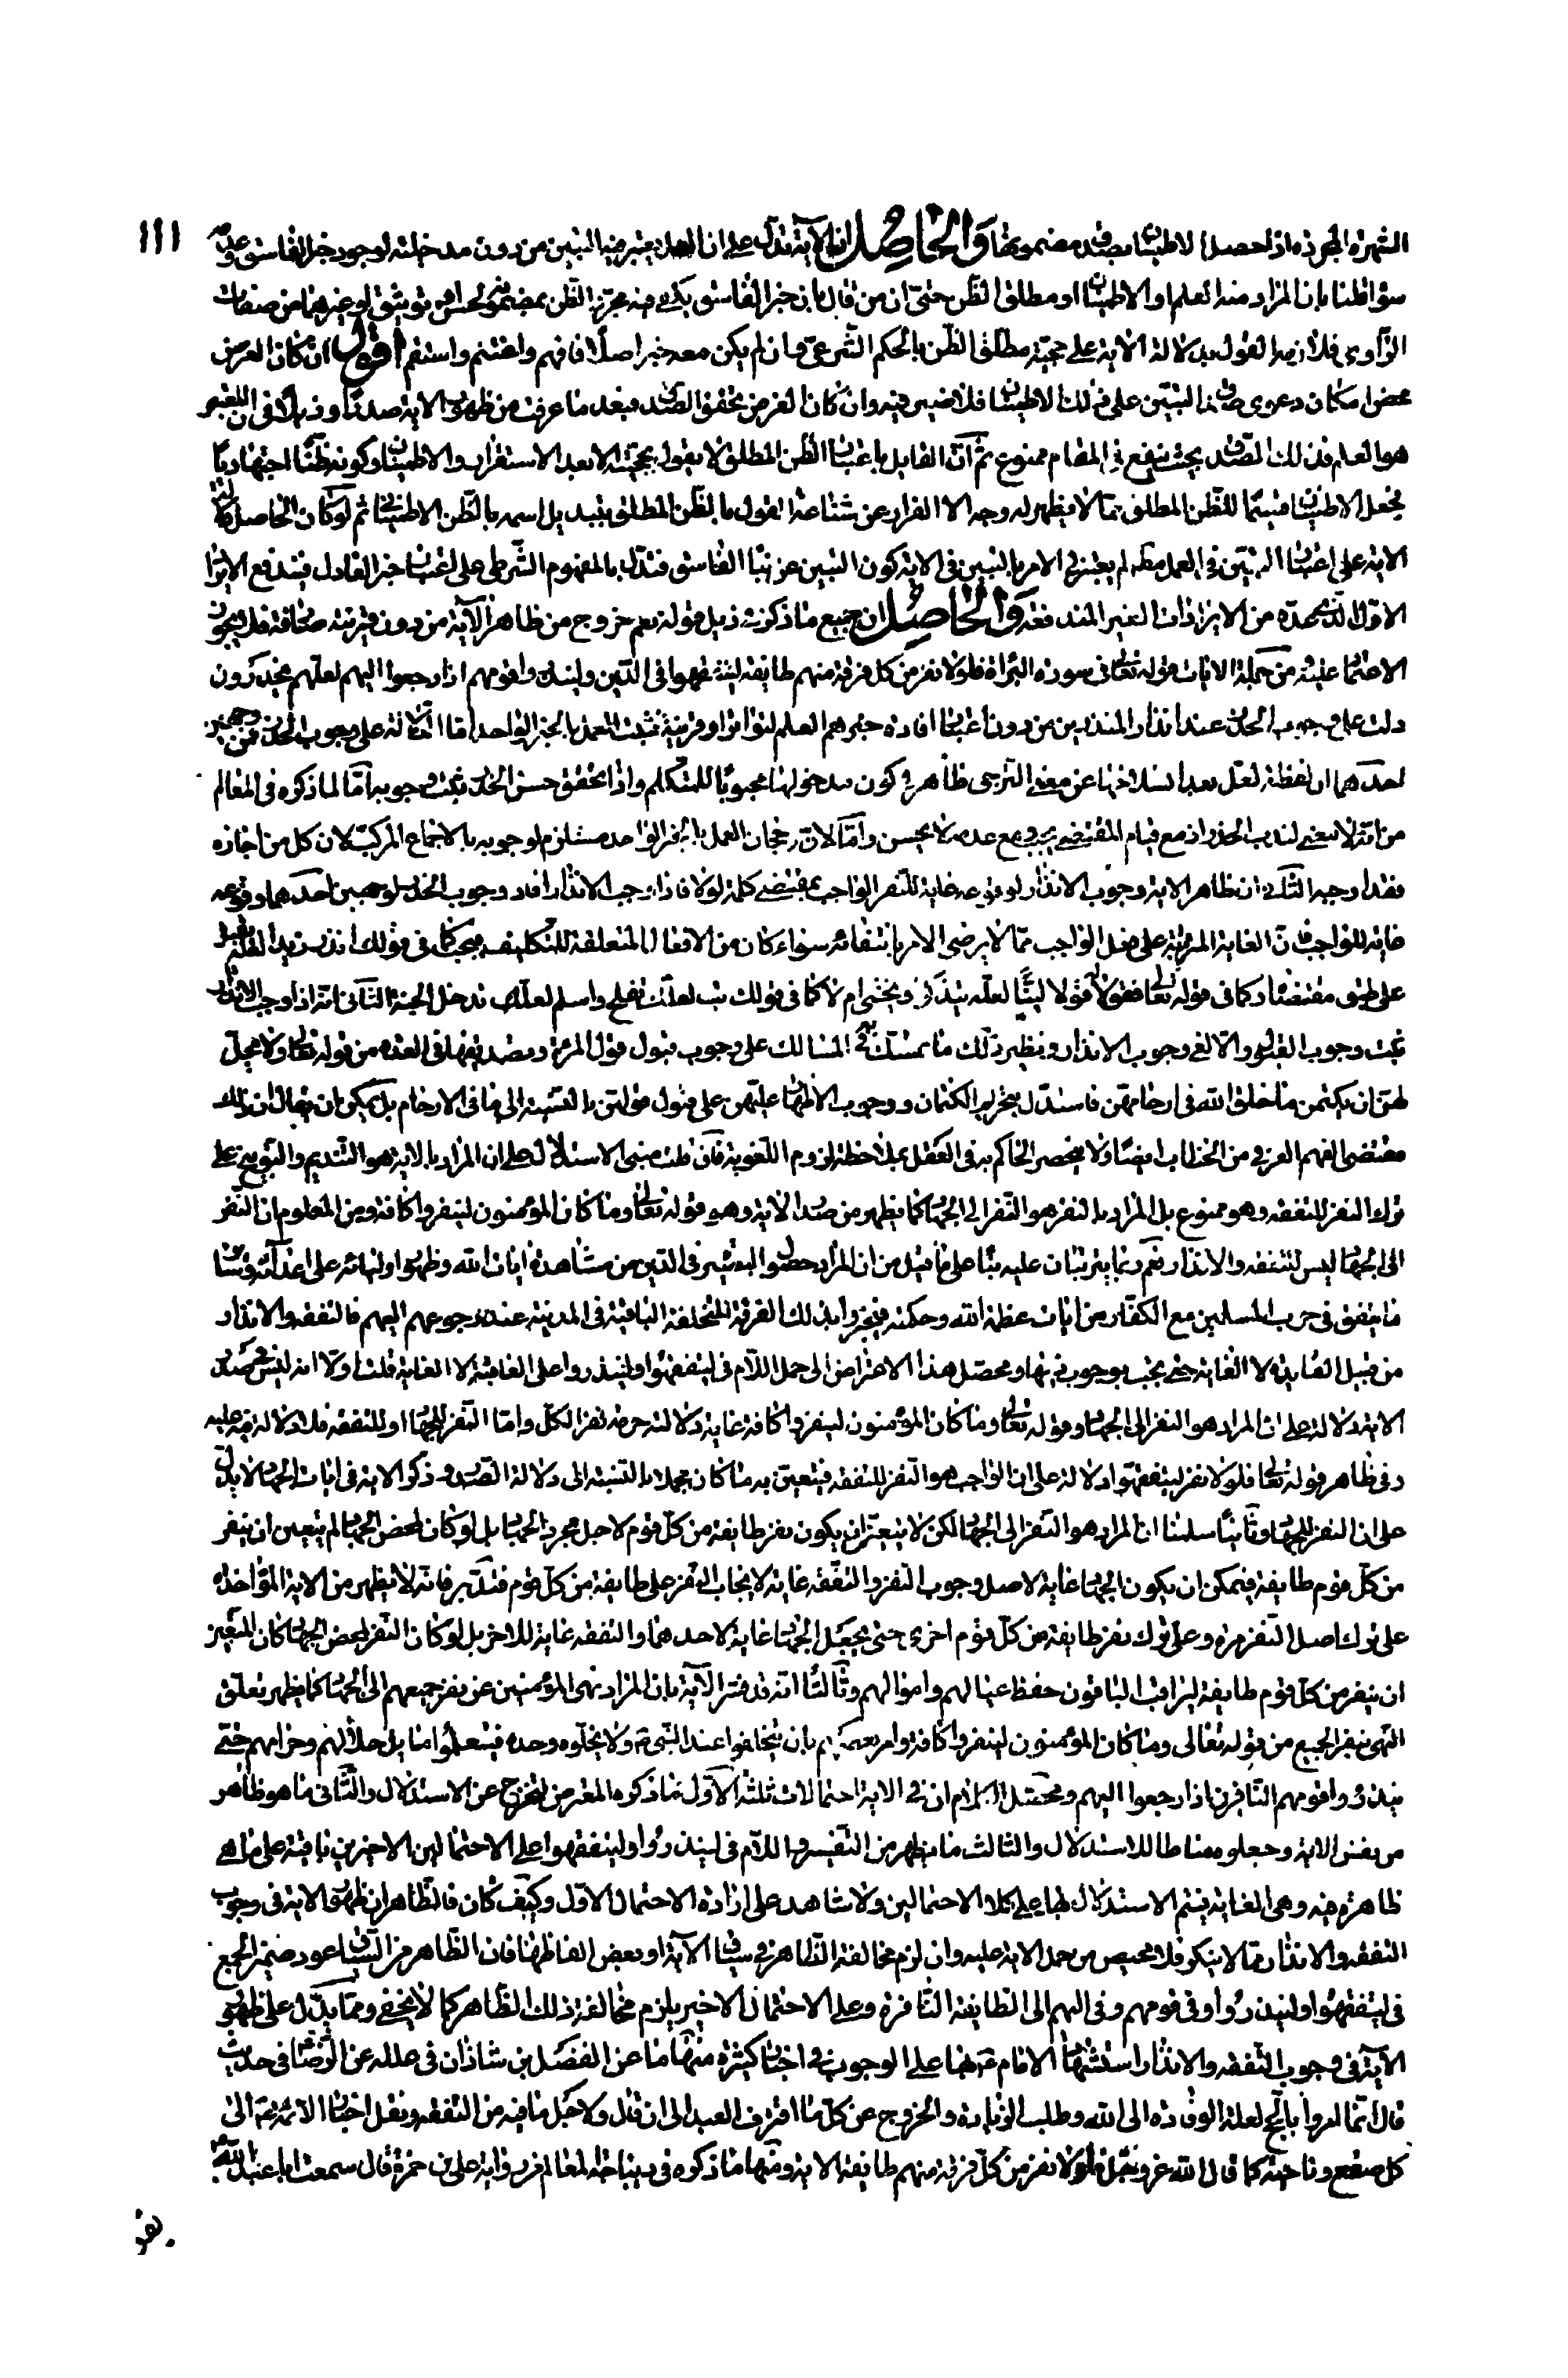 ١١١
الشهرة المجردة اذا حصل الاطمينان بصدق مضمونها وَالحاصِل ان الآية تدل على ان العمل يعتبر فيه التبين من دون مدخلية لوجود خبر الفاسق وعدمه
سواء قلنا بان المراد منه العلم او الاطمينان او مطلق الظن حتى ان من قال بان خبر الفاسق يكفى فيه مجرد الظن بمضمونه لحسن او توثيق او غيرهما من صفات
الراوى فلازمه القول بدلالة الآية على حجية مطلق الظن بالحكم الشرعى وان لم يكن معه خبر اصلا فافهم واغتنم واستقم اقول ان كان الغرض
محض امكان دعوى صدق التبين على ذلك الاطمينان فلا ضير فيه وان كان الغرض تحقق الصدق فبعد ما عرفت من ظهور الآية صدرا وذيلا فى ان المعتبر
هو العلم فذلك الصدق بحيث ينفع فى المقام ممنوع ثم ان القايل باعتبار الظن المطلق لا يقول بحجيته الا بعد الاستقرار والاطمينان وكونه ظنا اجتهاديا
فجعل الاطمينان قسيما للظن المطلق مما لا يظهر له وجه الا الفرار عن شناعة القول بالظن المطلق بتبديل اسمه بالظن الاطمينانى ثم لو كان الحاصل دلالة
الآية على اعتبار التبين فى العمل مطلقا لم يعتبر فى الامر بالتبين فى الآية كون التبين عن نبأ الفاسق فتدل بالمفهوم الشرطى على اعتبار خبر العادل فيندفع الايراد
الاول الذى عده من الايرادات الغير المندفعة وَالحاصِل ان جميع ما ذكره فى ذيل قوله نعم خروج من ظاهر الآية من دون قرينة صارفة فلا يجوز
الاعتماد عليه من جملة الآيات قوله تعالى فى سورة البراءة فلولا نفر من كل فرقة منهم طايفة ليتفقهوا فى الدين ولينذروا قومهم اذا رجعوا اليهم لعلهم يحذرون
دلت على وجوب الحذر عند انذار المنذرين من دون اعتبار افادة خبرهم العلم لتواتر او قرينة فثبت العمل بالخبر الواحد اما الدلالة على وجوب الحذر فمن وجهين
احدهما ان لفظة لعل بعد انسلاخها عن معنى الترجى ظاهرة فى كون مدخولها محبوبا للمتكلم واذا تحقق حسن الحذر ثبت وجوبه اما لما ذكره فى المعالم
من انه لا معنى لندب الحذر اذ مع قيام المقتضى يجب ومع عدمه لا يحسن واما لان رجحان العمل بالخبر الواحد مستلزم لوجوبه بالاجماع المركب لان كل من اجازه
فقد اوجبه الثانى ان ظاهر الآية وجوب الانذار لوقوعه غاية للنفر الواجب بمقتضى كلمة لولا فاذا وجب الانذار افاد وجوب الحذر لوجهين احدهما وقوعه
غاية للواجب فان الغاية المترتبة على فعل الواجب مما لا يرضى الامر بانتفائه سواء كان من الافعال المتعلقة للتكليف ام لا كما فى قولك
على طبق مقتضاه وكما فى قوله تعالى فقولا له قولا لينا لعله يتذكر او يخشى ام لا كما فى قولك تب لعلك تفلح واسلم لعلك تدخل الجنة الثانى انه اذا وجب الانذار
ثبت وجوب القبول والا لغى وجوب الانذار ونظير ذلك ما تمسك به فى المسالك على وجوب قبول قول المرءة وتصديقها فى العدة من قوله تعالى ولا يحل
لهن ان يكتمن ما خلق الله فى ارحامهن فاستدل بتحريم الكتمان ووجوب الاظهار عليهن على قبول قولهن بالنسبة الى ما فى الارحام بل يمكن ان يقال ان ذلك
مقتضى الفهم العرفى من الخطاب ايضا ولا ينحصر الحاكم به فى العقل بملاحظة لزوم اللغوية فان قلت مبنى الاستدلال على ان المراد بالآية هو التنديم والتوبيخ على
ترك النفر للتفقه وهو ممنوع بل المراد بالنفر هو النفر الى الجهاد كما يظهر من صدر الآية وهو قوله تعالى وما كان المؤمنون لينفروا كافة ومن المعلوم ان النفر
الى الجهاد ليس للتفقه والانذار نعم ربما يترتبان عليه بناء على ما قيل من ان المراد حصول البصيرة فى الدين من مشاهدة ايات الله وظهور اوليائه على اعدائه وسائر
ما يتفق فى حرب المسلمين مع الكفار من ايات عظمة الله وحكمته فيخبروا بذلك الفرقة المتخلفة الباقية فى المدينة عند رجوعهم اليهم فالتفقه والانذار
من قبيل الفايدة لا الغاية حتى يجب بوجوب ذيها ومحصل هذا الاعتراض الى حمل اللام فى ليتفقهوا ولينذروا على العاقبة لا الغاية قلت اولا انه ليس فى صدر
الآية دلالة على ان المراد هو النفر الى الجهاد وقوله تعالى وما كان المؤمنون لينفروا كافة غاية دلالته حرمة نفر الكل واما النفر للجهاد او للتفقه فلا دلالة فيه عليه
وفى ظاهر قوله تعالى فلولا نفر ليتفقهوا دلالة على ان الواجب هو النفر للتفقه فيتعين به ما كان مجملا بالنسبة الى دلالة الصدر وذكر الآية فى ايات الجهاد لا يدل
على ان النفر للجهاد وثانيا سلمنا ان المراد هو النفر الى الجهاد لكن لا يتعين ان يكون نفر طايفة من كل قوم لاجل مجرد الجهاد بل لو كان لمحض الجهاد لم يتعين ان ينفر
من كل قوم طايفة فيمكن ان يكون الجهاد غاية لاصل وجوب النفر والتفقه غاية لايجاب النفر على طايفة من كل قوم فتدبر فانه لا يظهر من الآية المؤاخذة
على ترك اصل النفر مرة وعلى ترك نفر طايفة من كل قوم اخرى حتى يجعل الجهاد غاية لاحدهما والتفقه غاية للاخر بل لو كان النفر لمحض الجهاد كان المتعين
ان ينفر من كل قوم طايفة ليراقب الباقون حفظ عيالهم واموالهم وثالثا انه قد فسر الآية بان المراد نهى المؤمنين عن نفر جميعهم الى الجهاد كما يظهر تعلق
النهى بنفر الجميع من قوله تعالى وما كان المؤمنون لينفروا كافة وامر بعضهم بان يتخلفوا عند النبى ص ولا يخلوه وحده فيتعلموا مسايل حلالهم وحرامهم حتى
ينذروا قومهم النافرين اذا رجعوا اليهم ومحصل الكلام ان فى الآية احتمالات ثلثة الاول ما ذكره المعترض ليخرج عن الاستدلال والثانى ما هو ظاهر
من نفس الآية وجعلوه مناطا للاستدلال والثالث ما يظهر من التفسير واللام فى لينذروا وليتفقهوا على الاحتمالين الاخيرين باقية على ما هى
ظاهرة فيه وهى الغاية فيتم الاستدلال بها على كلا الاحتمالين ولا شاهد على ارادة الاحتمال الاول وكيف كان فالظاهر ان ظهور الآية فى وجوب
التفقه والانذار مما لا ينكر فلا محيص من حمل الآية عليه وان لزم مخالفة الظاهر فى سياق الآية او بعض الفاظها فان الظاهر من السياق عود ضمير الجمع
فى ليتفقهوا ولينذروا وفى قومهم وفى اليهم الى الطايفة النافرة وعلى الاحتمال الاخير يلزم مخالفة ذلك الظاهر كما لا يخفى ومما يدل على ظهور
الآية فى وجوب التفقه والانذار استشهاد الامام ع بها على الوجوب فى اخبار كثيرة منها ما عن الفضل بن شاذان فى علله عن الرضا ع فى حديث
قال انما امروا بالحج لعلة الوفادة الى الله وطلب الزيادة والخروج عن كل ما اقترف العبد الى ان قال ولاجل ما فيه من التفقه ونقل اخبار الائمة ع الى
كل صقع وناحية كما قال الله عز وجل فلولا نفر من كل فرقة منهم طايفة الآية ومنها ما ذكره فى ديباجة المعالم من رواية على بن حمزة قال سمعت ابا عبد الله ع